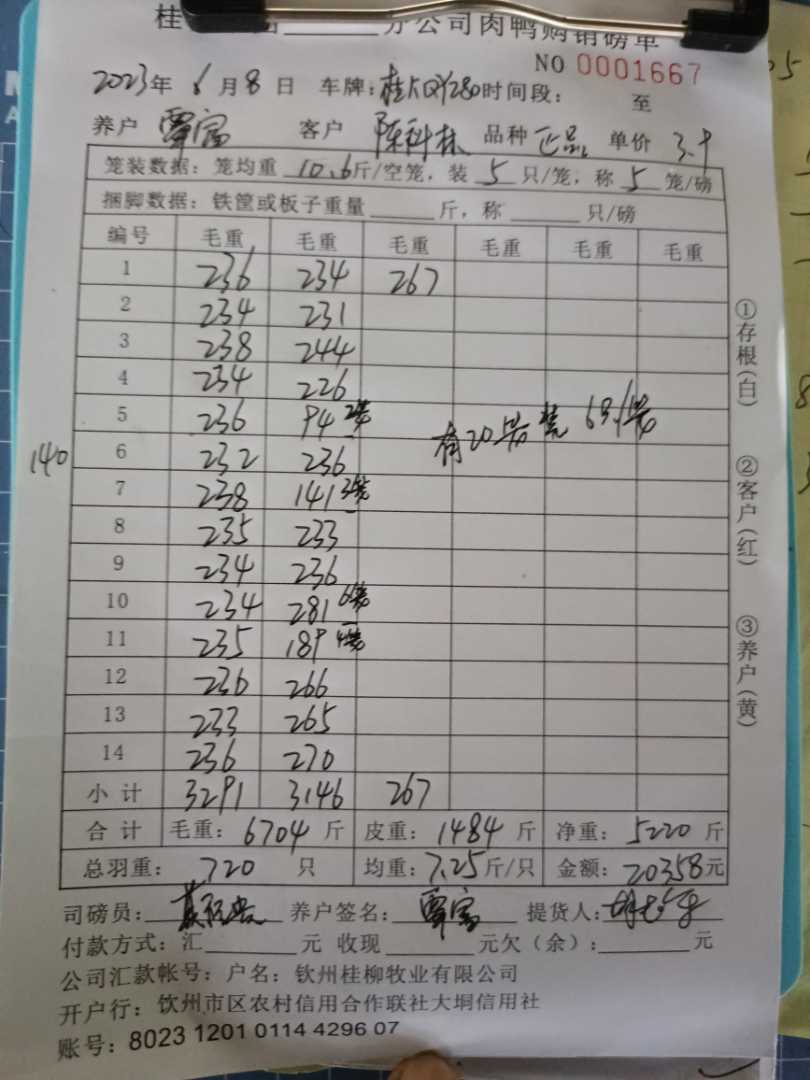 桂 分公司肉鸭购销磅单
NO 0001667
2023年 6月8日 车牌: 280 时间段: 至
养户 覃富 客户 陈科林 品种 正品 单价 3.9
笼装数据: 笼均重 10.6斤/空笼, 装 5 只/笼, 称 5 笼/磅
捆脚数据: 铁筐或板子重量 斤, 称 只/磅
编号 毛重 毛重 毛重 毛重 毛重 毛重
1 236 234 267
2 234 231
3 238 244
4 234 226
5 236 94 2笼
有20笼装6只/笼
6 232 236
140
7 238 141 3笼
8 235 233
9 234 236
10 234 281 6笼
11 235 189 4笼
12 236 266
13 233 265
14 236 270
小计 3291 3146 267
合计 毛重: 6704 斤 皮重: 1484 斤 净重: 5220 斤
总羽重: 720 只 均重: 7.25斤/只 金额: 20358元
司磅员: 养户签名: 覃富 提货人:
付款方式: 汇 元 收现 元欠(余): 元
公司汇款帐号: 户名: 钦州桂柳牧业有限公司
开户行: 钦州市区农村信用合作联社大垌信用社
账号: 8023 1201 0114 4296 07
①存根(白)
②客户(红)
③养户(黄)